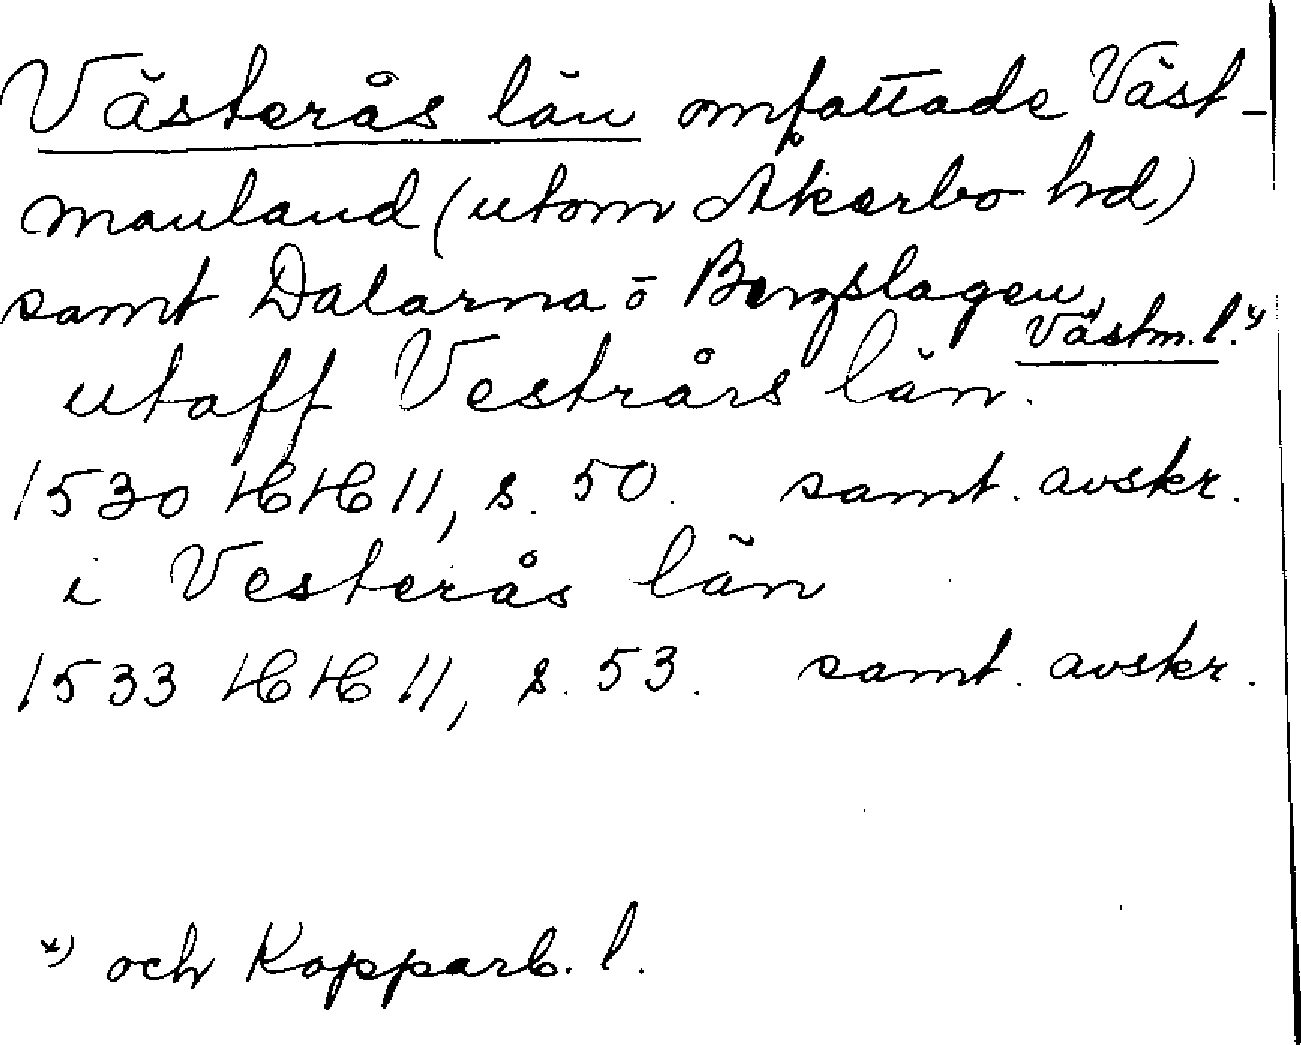 Västerås län omfattade Väst-
manland (utom Åkerbo hd)
samt Dalarna o Bergslagen,
Västm. l. *)
utaff Vestrårs län.
1530 HH 11, s. 50. samt. avskr.
i Vesterås län
1533 HH 11, s. 53. samt. avskr.
*) och Kopparb. l.